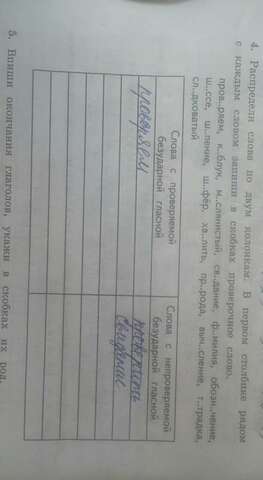 4. Распредели слова по двум колонкам. В первом столбике рядом
с каждым словом запиши в скобках проверочное слово.
пров..ряем, к..блук, м..слянистый, св..дание, ф..милия, обозн..чение,
ш..ссе, ш..пение, ш..фёр, хв..лить, пр..рода, выч..сление, т..традка,
сл..дковатый
Слова с проверяемой
безударной гласной
Слова с непроверяемой
безударной гласной
проверяем
свидание
5. Впиши окончания глаголов, укажи в скобках их род.